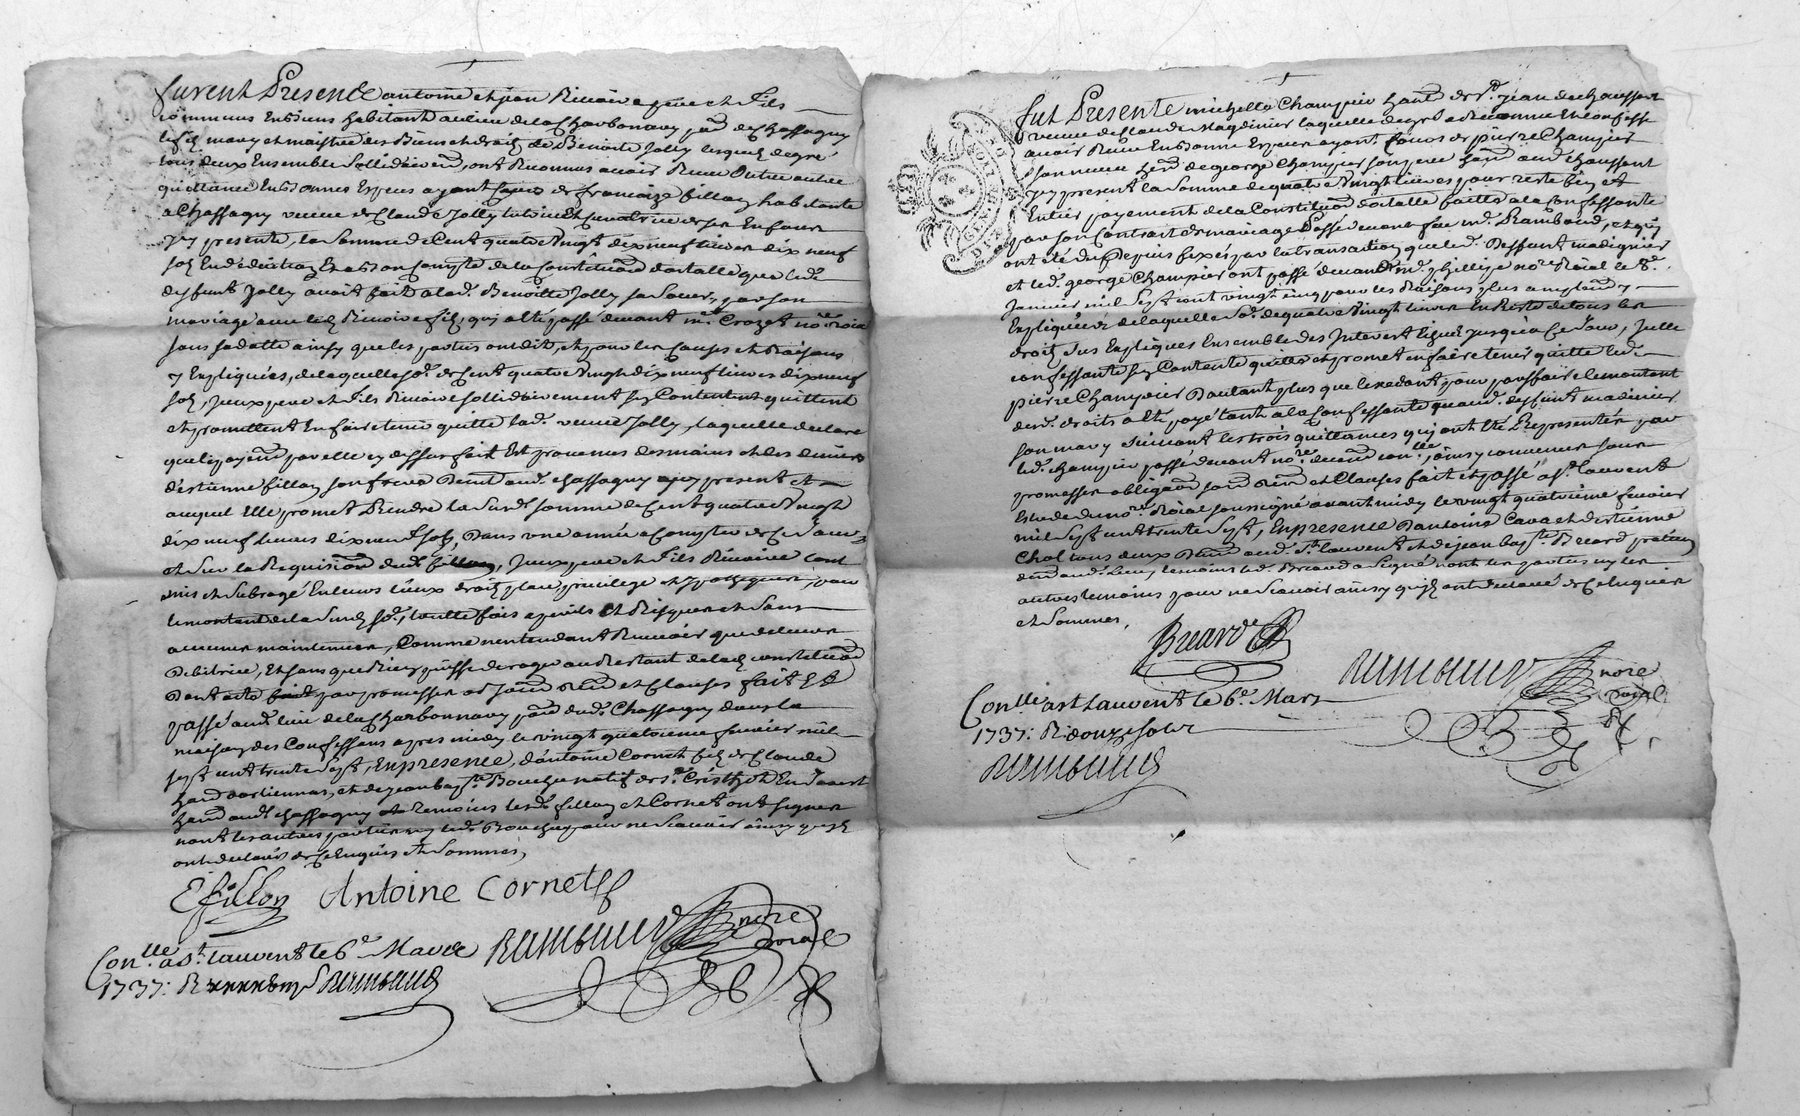 furent Presents antoine et jean Rivoire pere et fils
communs en biens habitants au lieu de la Charbonnary par. de Chassagny
led. fils mary et maistre des Biens et droits de Benoite Jolly lesquels de gré
tous deux Ensemble sollidairemt. ont Reconnus avoir Receu outre autre
quittance En bonnes Especes ayant cours de françoize fillon habitante
a Chassagny veuve de Claude Jolly tutrice Et curatrice de ses Enfans
icy presente, la somme de Cent quatre Vingt dix neuf livres dix neuf
sols En déduction Et a bon compte de la Constitution dotalle que led.
deffunt Jolly avoit fait a lad. Benoitte Jolly sa soeur, par son
mariage avec led. Rivoire fils, qui a Eté passé devant me. Crozet nore. roial
sans sa datte ainsy que les parties ont dit, et pour les causes et Raisons
y Expliquées, de laquelle so. de Cent quatre Vingt dix neuf livres dix neuf
sols, Jceux pere et fils Rivoire sollidairement se Contentent quittent
et promettent En faire tenir quitte lad. veuve Jolly, laquelle declare
que le payemt. par elle cy dessus fait Est provenus des mains et des deniers
d'estienne fillon son frere Resid. aud. Chassagny icy present et
auquel Elle promet Rendre la susd. somme de Cent quatre Vingt
dix neuf livres dix neuf sols, Dans une année a Compter de Ce Jour
et sur la Requisition dud. fillon, Jceux pere et fils Rivoire l'ont
mis et subrogé En leurs lieux droits place privilege et hypotheques, pour
le montant de la susd. so., toutte fois a perils Et Risques et sans
aucune maintenue, Comme n'entendant Recevoir que de leur
Debitrice, Et sans que Rien puisse deroger au Restant de lad. constitution
Dont acte fait par promesses ob. soum. Ren. et Clauses fait Et
passé aud. lieu de la Charbonnary par. dud. Chassagny dans la
maison des Confessans apres midy le vingt quatrieme fevrier mil
sept cent trente Sept, En presence, d'antoine Cornet fils de Claude
et de jean bapte. Bouchu natif de st.
habt. aud. Chassagny temoins lesd. fillon et Cornet ont signer
non les autres parties ny led. Bouchu pour ne sçavoir ainsy quils
ont declarés de Ce Enquis Et Sommés,
E fillon Antoine Cornet
Conlle. a St. laurent le 6e. Mars Rambaud nore roial
1737: R Rambaud
fut Presente michelle Champier habt. de St. jean de chaussant
veuve de Claude Magdinier laquelle de gré a Reconnu Et Confessé
avoir Receu En bonne Espece ayant Cours de pierre Champier
son neveu herit. de george Champier son pere habt. aud. Chaussant
icy present la somme de quatre Vingt livres pour reste bien et
Entier payement de la Constitution dotalle faitte a la Confessante
par son Contrat de mariage Passé devant feu me. Rambaud, et qui
ont Eté du depuis fixés par la transaction que led. deffunt madignier
et led. george Champier ont passé devant me. phillipe nore. Roial le 8e.
Janvier mil sept cent vingt cinq pour les Raisons plus amplement y
Expliquées de laquelle so. de quatre Vingt livres En Reste de tous les
droits sus Expliqués Ensemble des Interest liquid. jusqua Ce Jour, Jcelle
confessante se Contente quitte et promet en faire tenir quitte led.
pierre Champier Dautant plus que le restant pour parfaire le montant
desd. droits a Eté payé tant a la Confessante quaud. deffunt madinier
son mary suivant les trois quittances qui ont Eté Representée par
led. Champier passé devant nore. ainsy convenus sous
promesses obligaon. soum. ren. et Clauses fait et passé a St. laurent
Etude du nore. Roial soussigné avant midy le vingt quatrieme fevrier
mil Sept cent trente Sept, En presence D'antoine Cava et d'estienne
Chol tous deux Resid. aud. St. laurent et de jean bapte. Breard praticien
aud. Lieu, temoins led. Breard a signé non les parties ny les
autres temoins pour ne sçavoir ainsy qu'ils ont declaré de Ce Enquis
et Sommés,
Breard
Rambaud nore roial
Conlle. a St. laurent le 6e. Mars
1737: R. douze sols
Rambaud